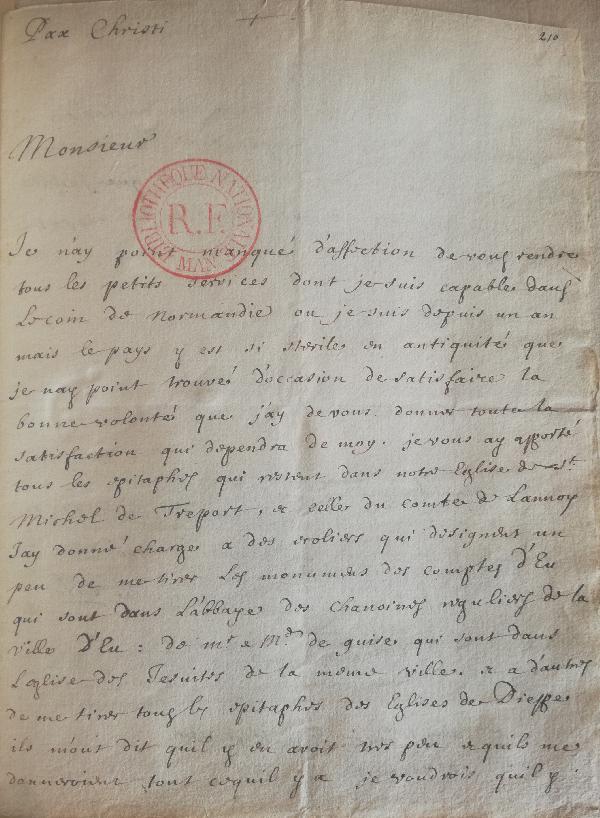 Pax Christi
210
Monsieur
BIBLIOTHEQUE NATIONALE
R.F.
MAN
Je n'ay point manqué d'affection de vous rendre
tous les petits services dont je suis capable dans
Le coin de normandie ou je suis depuis un an
mais le pays y est si sterile en antiquité que
je nay point trouvé d'occasion de satisfaire la
bonne volonté que j'ay de vous donner toute la
satisfaction qui dependra de moy. je vous ay apporté
tous les epitaphes qui restent dans notre Eglise de st.
Michel de Treport, & celle du comte de Lannoy
J'ay donné charge a des ecoliers qui designent un
peu de me tirer Les monumens des comptes D'Eu
qui sont dans L'abbaye des chanoines reguliers de la
ville D'Eu : de mr & Me de guise qui sont dans
L'eglise des Jesuites de la meme ville. & a d'autres
de me tirer tous les epitaphes des Eglises de Dieppe
ils m'ont dit quil y en avoit tres peu & quils me
donneroient tout cequil y a je voudrois quil y